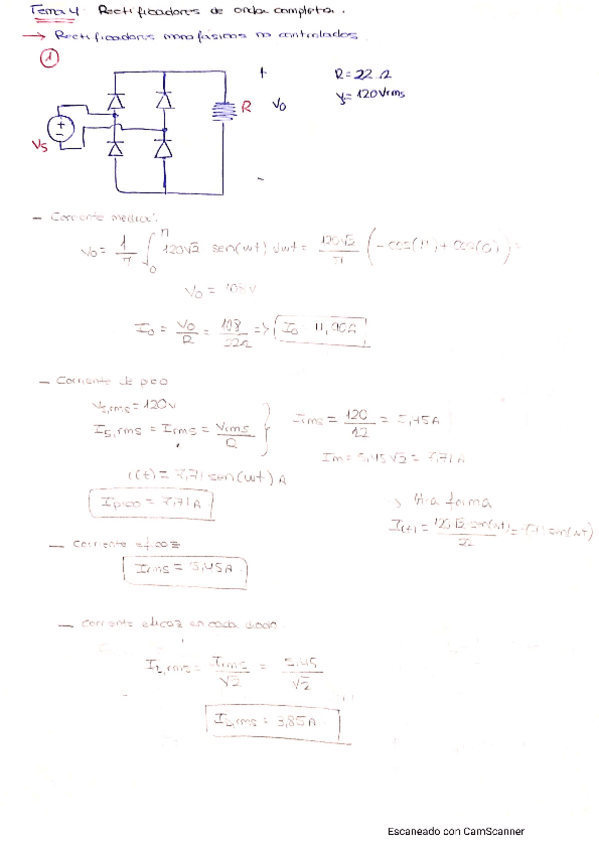 Tema 4: Rectificadores de onda completa.
→ Rectificadores monofásicos no controlados.
①
+ R = 22 Ω
R Vo
Vs = 120 Vrms
Vs
-
- Corriente media:
Vo = 1/π ∫₀^π 120√2 sen(wt) dwt = 120√2/π (-cos(π) + cos(0)) =
Vo = 108V
Io = Vo/R = 108/22Ω => Io
- Corriente de pico
Vs,rms = 120V
Is,rms = Irms = Vrms/R
Irms = 120/12 = 5,45A
Im = 5,45√2 = 7,71 A
i(t) = 7,71 sen(wt) A
Ipico = 7,71A
→ otra forma
I(t) = 120√2 sen(wt)/22 = 7,71 sen(wt)
- Corriente eficaz
Irms = 5,45A
- Corriente eficaz en cada diodo.
Irms/√2 = 5,45/√2
= 3,85A
Escaneado con CamScanner